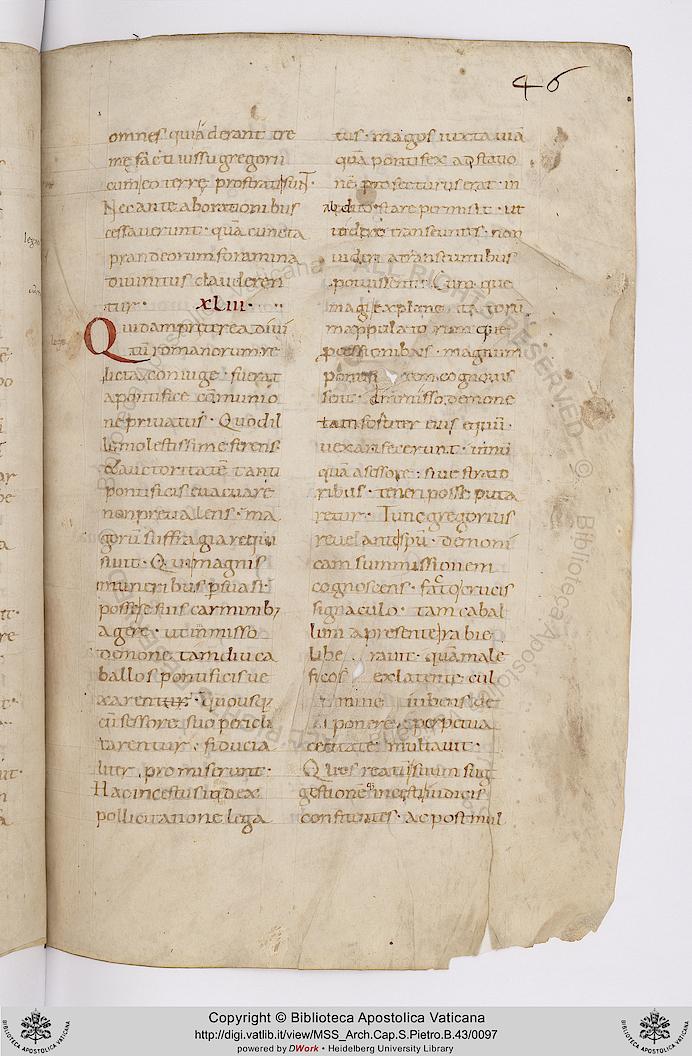 46
omnes qui aderant tre
męfacti iussu gregorii
cum eo terrę prostrati sunt.
Nec ante ab orationibus
cessauerunt. quā cuncta
prandeorum foramina
diuinitus clauderen
tur. XLIII.
Quidam pręterea diui
tū romanorum re
licta coniuge. fuerat
a pontifice cōmunio
ne priuatus. Quod il
le molestissime ferens
& auctoritatē tanti
pontificis euacuare
non preualens. ma
gorū suffragia requi
siuit. Qui magnis
muneribus psuasi.
posse se suis carminib;
agere. ut inmisso
demone tamdiu ca
ballos pontificis ue
xarentur. quousq;
cū sessore suo pericli
tarentur. fiducia
liter promiserunt.
Hac incestus iudex
pollicitatione lega
tus. magos iuxta uiā
quā pontifex ad statio
nē profecturus erat. in
abdito stare permisit. ut
uidere transeuntes. non
uideri a transeuntibus
potuissent. Cum que
magi explane
mappulatorum que
processionibus. magnum
pontificem cognouis
sent. dimisso demone
tam fortiter eius equū
uexari fecerunt. ut n̄
quā a sessore. siue strato
ribus. teneri posse puta
retur. Tunc gregorius
reuelante spū. demoni
cam summissionem
cognoscens. facto crucis
signaculo. tam cabal
lum a presente rabie
liberauit. quā male
ficos ex latente cul
mine iubens de
ponere. perpetua
cecitate multauit.
Qui se reatus sui sug
gestione
confitentes. ac postmul
Copyright © Biblioteca Apostolica Vaticana
http://digi.vatlib.it/view/MSS_Arch.Cap.S.Pietro.B.43/0097
powered by DWork • Heidelberg University Library